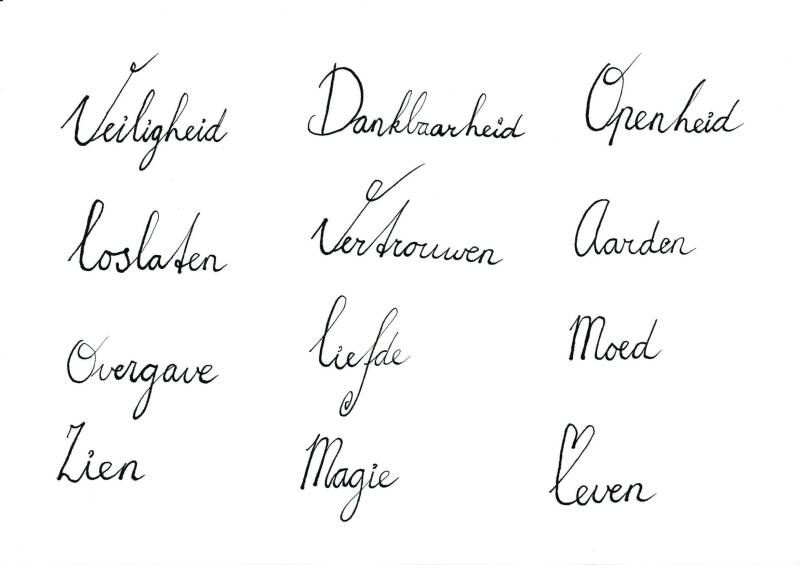 Veiligheid Dankbaarheid Openheid
Loslaten Vertrouwen Aarden
Overgave Liefde Moed
Zien Magie Leven